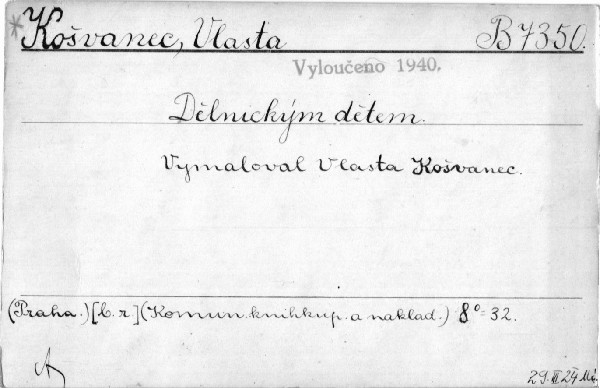 Košvanec, Vlasta B 7350.
Vyloučeno 1940.
Dělnickým dětem.
Vymaloval Vlasta Košvanec.
(Praha.) [b. r.] (Komun. knihkup. a naklad.) 8°-32.
29. III 24